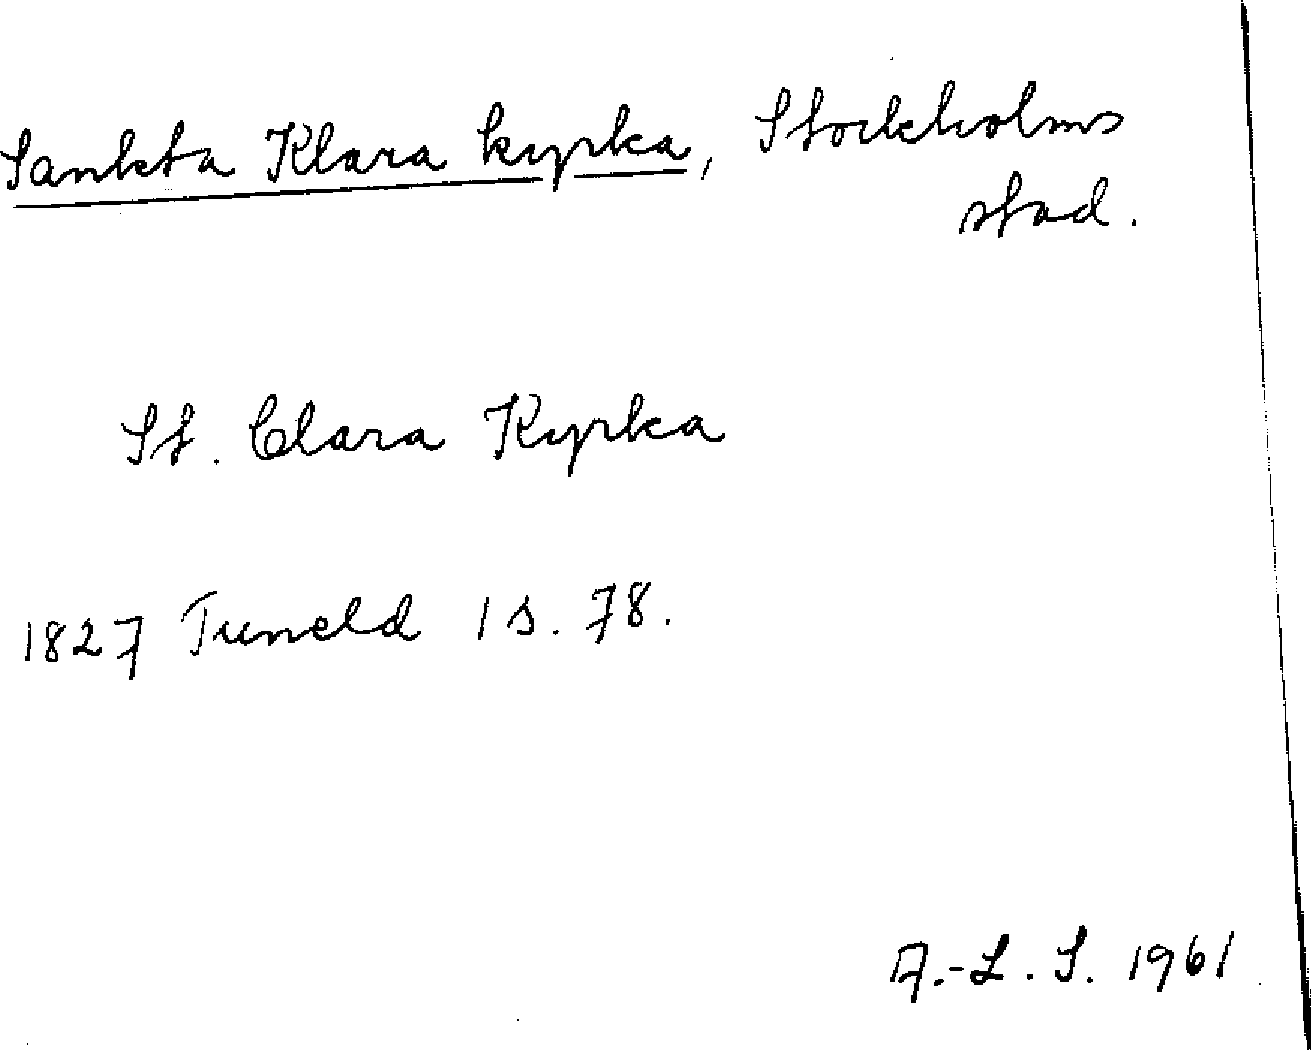 Sankta Klara kyrka, Stockholms
stad.
St. Clara Kyrka
1827 Tuneld 1 s. 78.
A.-L. S. 1961